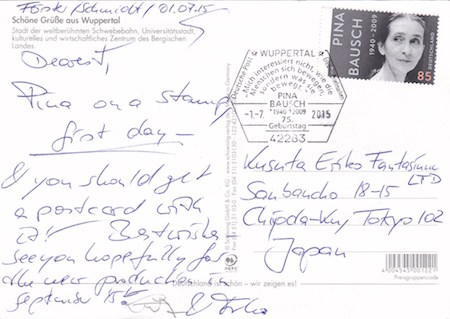 Förster/Schmidt/01.07.15
Schöne Grüße aus Wuppertal
Stadt der weltberühmten Schwebebahn, Universitätsstadt,
kulturelles und wirtschaftliches Zentrum des Bergischen
Landes.
Dearest,
Pina on a stamp
first day –
& you should get
a postcard with
it! Best wishes
see you hopefully for
the new production in
september 15
PINA
BAUSCH
1940-2009
DEUTSCHLAND
85
Deutsche Post
WUPPERTAL
Mich interessiert nicht, wie die
Menschen sich bewegen,
sondern was sie
bewegt.
PINA
BAUSCH
*1940 †2009
75.
Geburtstag
-1.-7. 2015
42283
Kusuta Eriko Fantasium
LTD
Sanbancho 18-15
Chiyoda-Ku, Tokyo 102
Japan
Deutschland ist schön – wir zeigen es!
4 004545 001221
Preisgruppencode